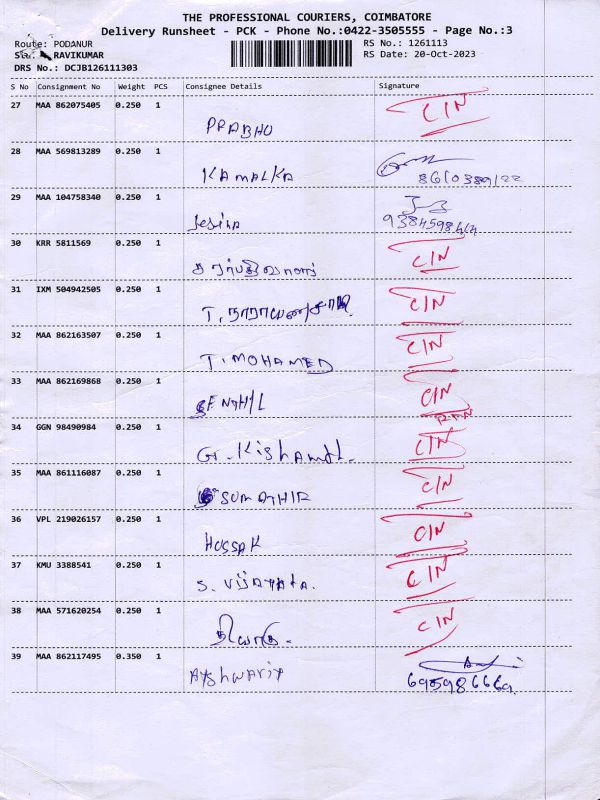 THE PROFESSIONAL COURIERS, COIMBATORE
Delivery Runsheet - PCK - Phone No.:0422-3505555 - Page No.:3
Route: PODANUR
RS No.: 1261113
RAVIKUMAR
RS Date: 20-Oct-2023
DRS No.: DCJB126111303
S No Consignment No Weight PCS Consignee Details Signature
27 MAA 862075405 0.250 1 PRABHU CIN
28 MAA 569813289 0.250 1 KAMALKA
8610389122
29 MAA 104758340 0.250 1 Jesina
9384598464
30 KRR 5811569 0.250 1 CIN
31 IXM 504942505 0.250 1 T. CIN
32 MAA 862163507 0.250 1 T. MOHAMED CIN
33 MAA 862169868 0.250 1 SENTHIL CIN
34 GGN 98490984 0.250 1 CIN
35 MAA 861116087 0.250 1 CIN
36 VPL 219026157 0.250 1 HUSSAK CIN
37 KMU 3388541 0.250 1 CIN
38 MAA 571620254 0.250 1 CIN
39 MAA 862117495 0.350 1 Ayshwariy
6985986669